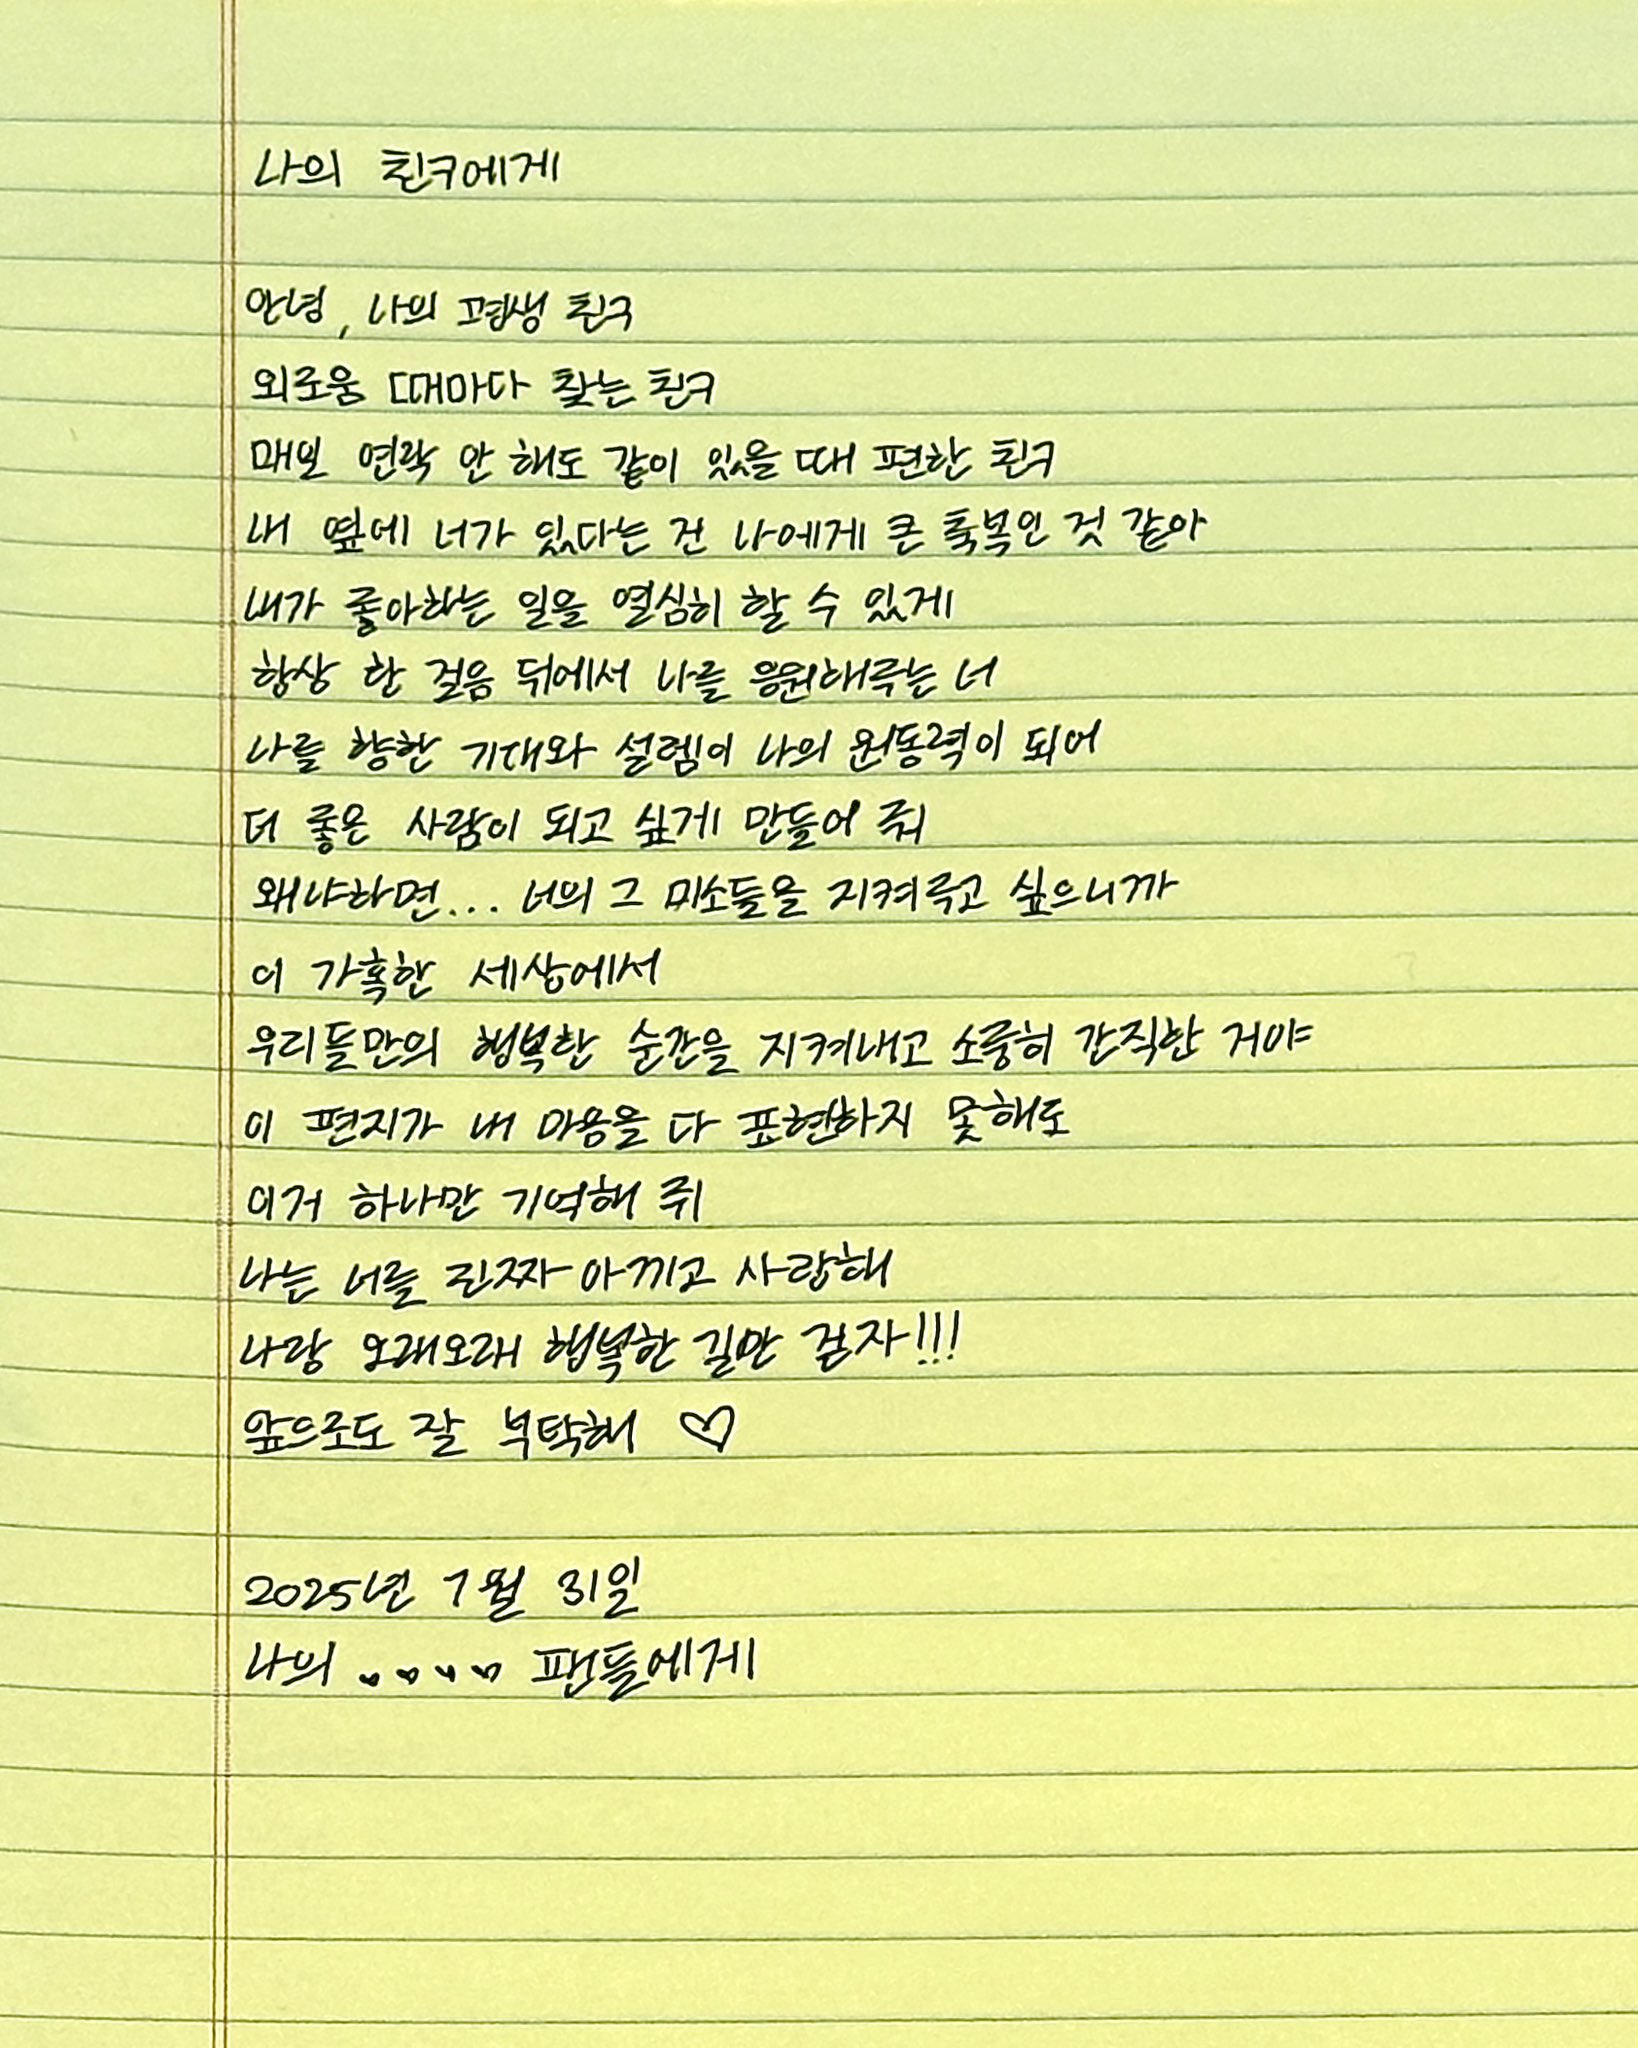 나의 친구에게
안녕, 나의 평생 친구
외로움 때마다 찾는 친구
매일 연락 안 해도 같이 있을 때 편한 친구
내 옆에 너가 있다는 건 나에게 큰 축복인 것 같아
내가 좋아하는 일을 열심히 할 수 있게
항상 한 걸음 뒤에서 나를 응원해주는 너
나를 향한 기대와 설렘이 나의 원동력이 되어
더 좋은 사람이 되고 싶게 만들어 줘
왜냐하면... 너의 그 미소들을 지켜주고 싶으니까
이 가혹한 세상에서
우리들만의 행복한 순간을 지켜내고 소중히 간직한 거야
이 편지가 내 마음을 다 표현하지 못해도
이거 하나만 기억해 줘
나는 너를 진짜 아끼고 사랑해
나랑 오래오래 행복한 길만 걷자!!!
앞으로도 잘 부탁해 ♡
2025년 7월 31일
나의 팬들에게